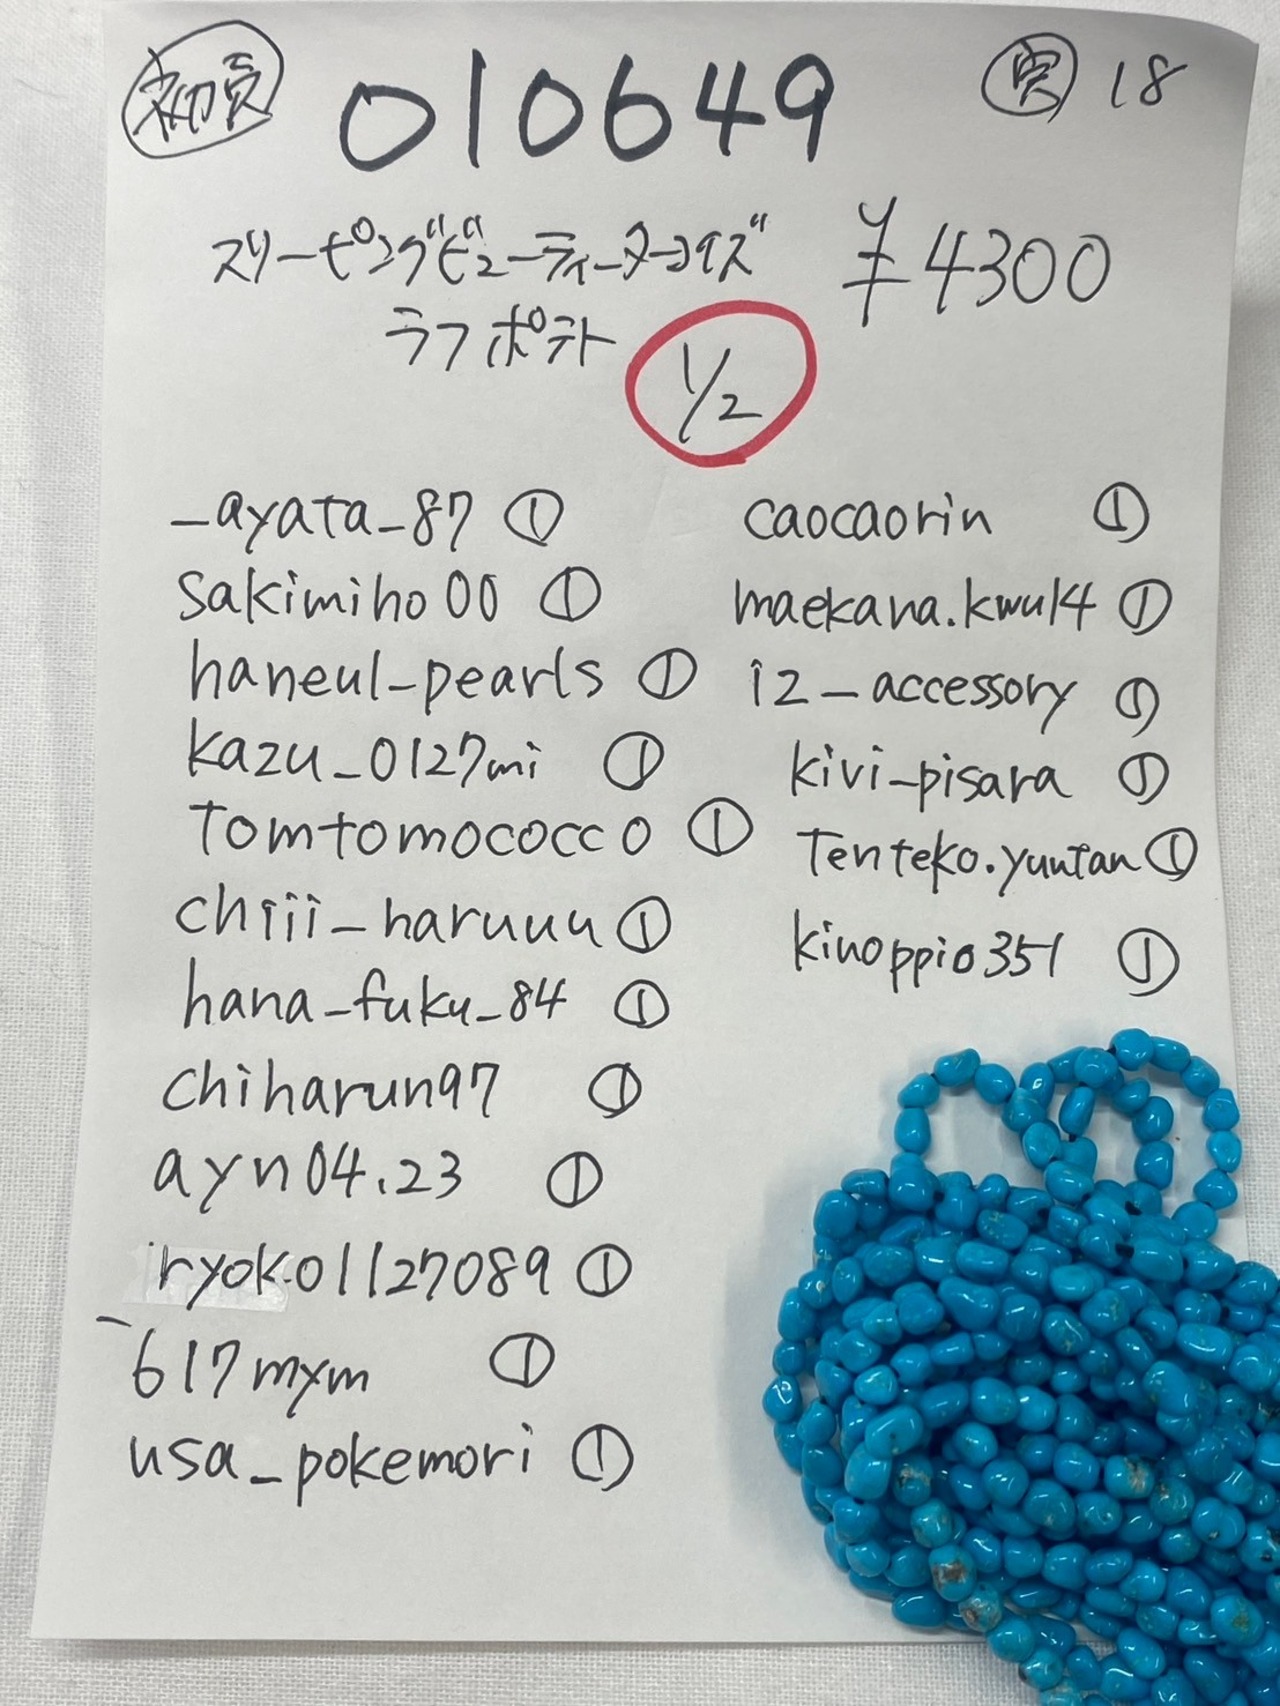 初買 010649 実 18
スリーピングビューティーターコイズ ¥4300
ラフポテト 1/2
_ayata_87 ①
sakimiho00 ①
haneul_pearls ①
kazu_0127mi ①
tomtomococco ①
chiii_haruuu ①
hana_fuku_84 ①
chiharun97 ①
ayn04.23 ①
ryoko01127089 ①
_617mym ①
usa_pokemori ①
caocaorin ①
maekana.kwu14 ①
iz_accessory ①
kivi_pisara ①
tenteko.yuntan ①
kinoppio351 ①